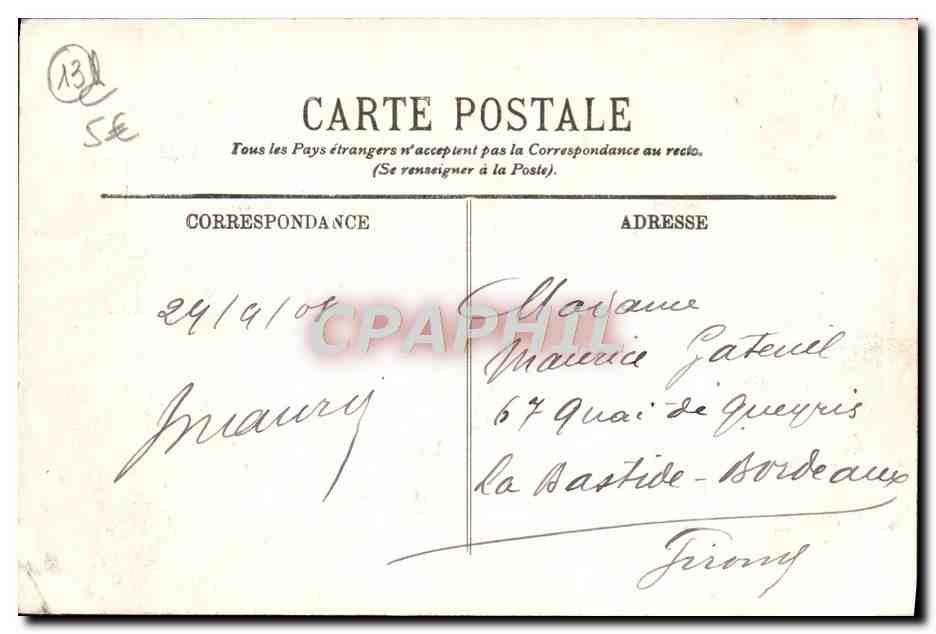 13
5€
CARTE POSTALE
Tous les Pays étrangers n'acceptent pas la Correspondance au recto.
(Se renseigner à la Poste).
CORRESPONDANCE
ADRESSE
CPAPHIL
Madame
Maurice Gateuil
67 Quai de Queyris
La Bastide - Bordeaux
Gironde